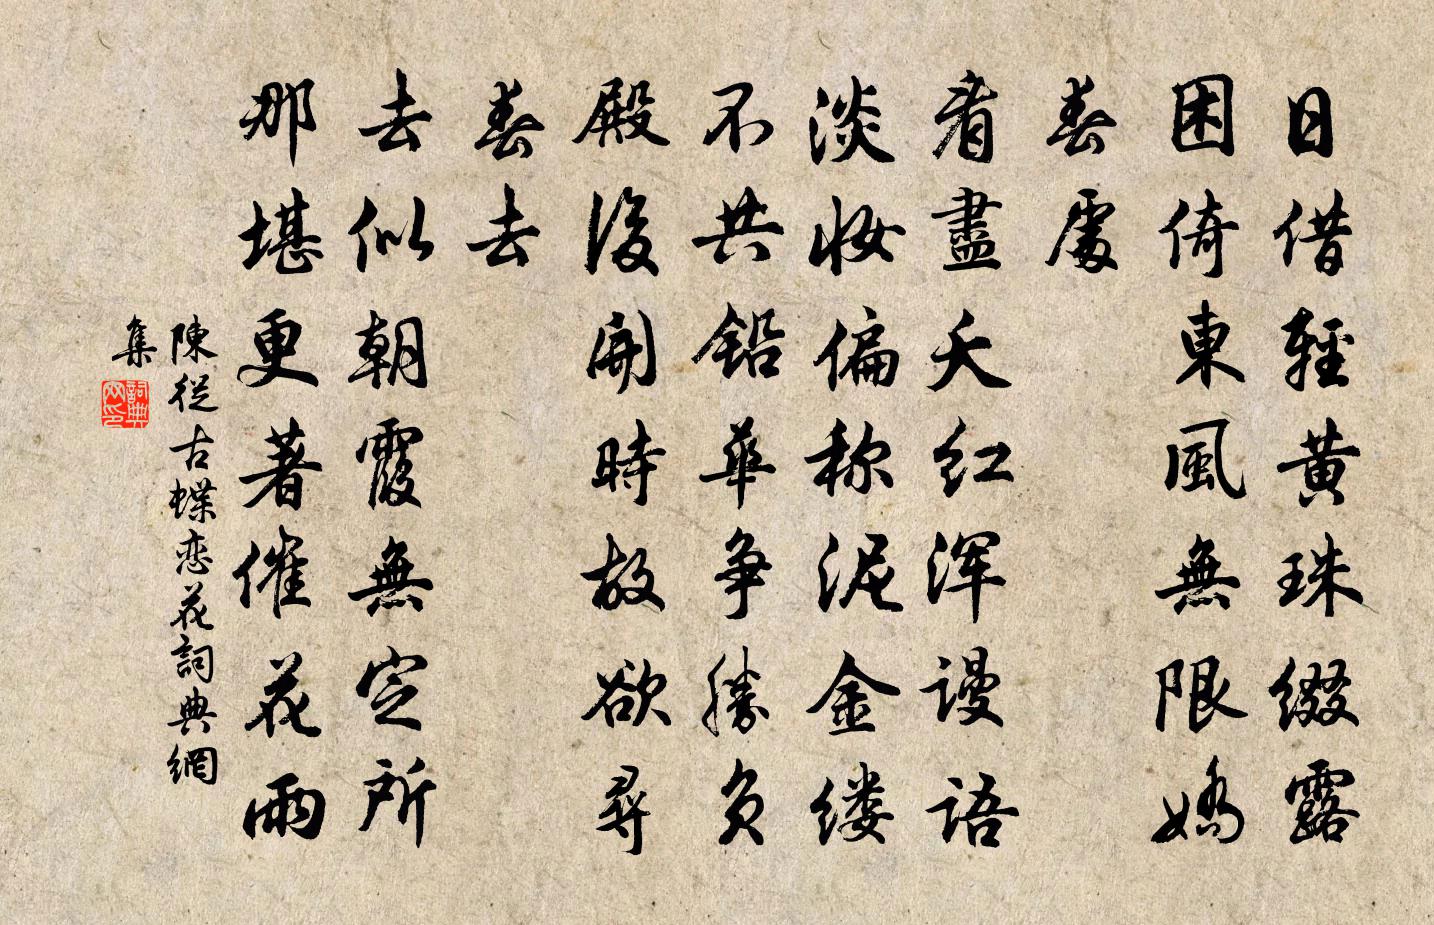 日借輕黄珠綴露
困倚東風無限嬌
春處
看盡夭红浑謾語
淡妝偏称泥金缕
不共铅華争勝负
殿後開時故欲尋
春去
去似朝霞無定所
那堪更著催花雨
陳從古蝶恋花詞典網
集
詞典網印